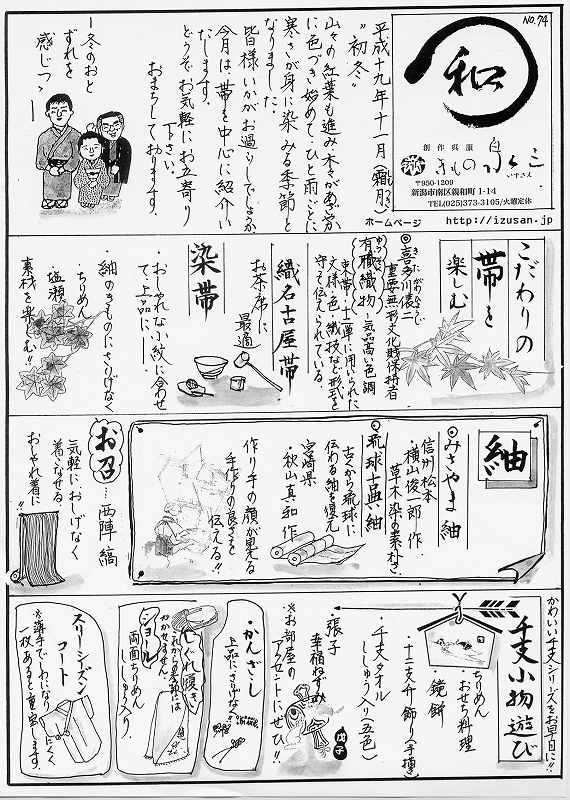 NO.74
和
創作呉服
きもの 泉三
いずさん
〒950-1209
新潟市南区親和町1-14
TEL(025)373-3105/火曜定休
ホームページ http://izusan.jp
平成十九年十一月(霜月)
"初冬"
山々の紅葉も進み木々があざやか
に色づき始めて、ひと雨ごとに
寒さが身に染みる季節と
なりました。
皆様いかがお過しでしょうか
今月は帯を中心に紹介い
たします。
どうぞお気軽にお立寄り
下さい。
おまちしております。
―冬のおと
ずれを
感じつつ―
こだわりの
帯を
楽しむ
◎喜多川俵二
きたがわひょうじ
重要無形文化財保持者
有職織物~気品高い色調
束帯・十二単に用いられた
文様・色・織技など形式を
守り伝えられている。
織名古屋帯
お茶席に
最適
染帯
・おしゃれな小紋に合わせ
て、上品に―
・紬のきものにさりげなく
・ちりめん
・塩瀬
素材を楽しむ!!
紬
◎みさやま紬
信州松本
・横山俊一郎 作
草木染の素朴さ
◎琉球古典紬
古から琉球に
伝わる紬を復元
宮崎県
・秋山真和 作
作り手の顔が見える
手作りの良さを
伝える!!
お召…西陣縞
気軽におしゃれなく
着こなせる
おしゃれ着に
!!
かわいい干支シリーズをお早目に!!
干支小物遊び
・ちりめん
おせち料理
・鏡餅
・十二支午飾り(手描)
・干支タオル
ししゅう入り(五色)
・張子
幸福ねずみ
※お部屋の
アクセントにぜひ!!
戊子
・かんざし
上品にさりげなく!!
・しぐれ履き
これからの季節には
かかせません。
・ショール
両面ちりめん
ししゅう入り
スリーシーズン
コート
※薄手でしわになりにくく
一枚あると重宝します。